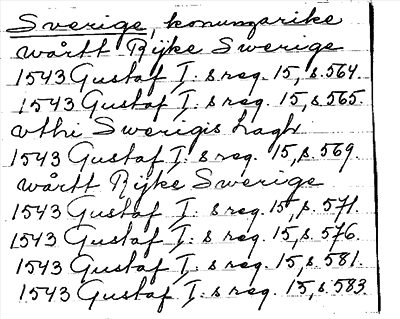 Sverige, konungarike
wårtt Rijke Swerige
1543 Gustaf I: s reg. 15, s. 564.
1543 Gustaf I: s reg. 15, s. 565.
vthi Swerigis Lagh
1543 Gustaf I: s reg. 15, s. 569.
wårtt Rijke Swerige
1543 Gustaf I: s reg. 15, s. 571.
1543 Gustaf I: s reg. 15, s. 576.
1543 Gustaf I: s reg. 15, s. 581.
1543 Gustaf I: s reg. 15, s. 583.